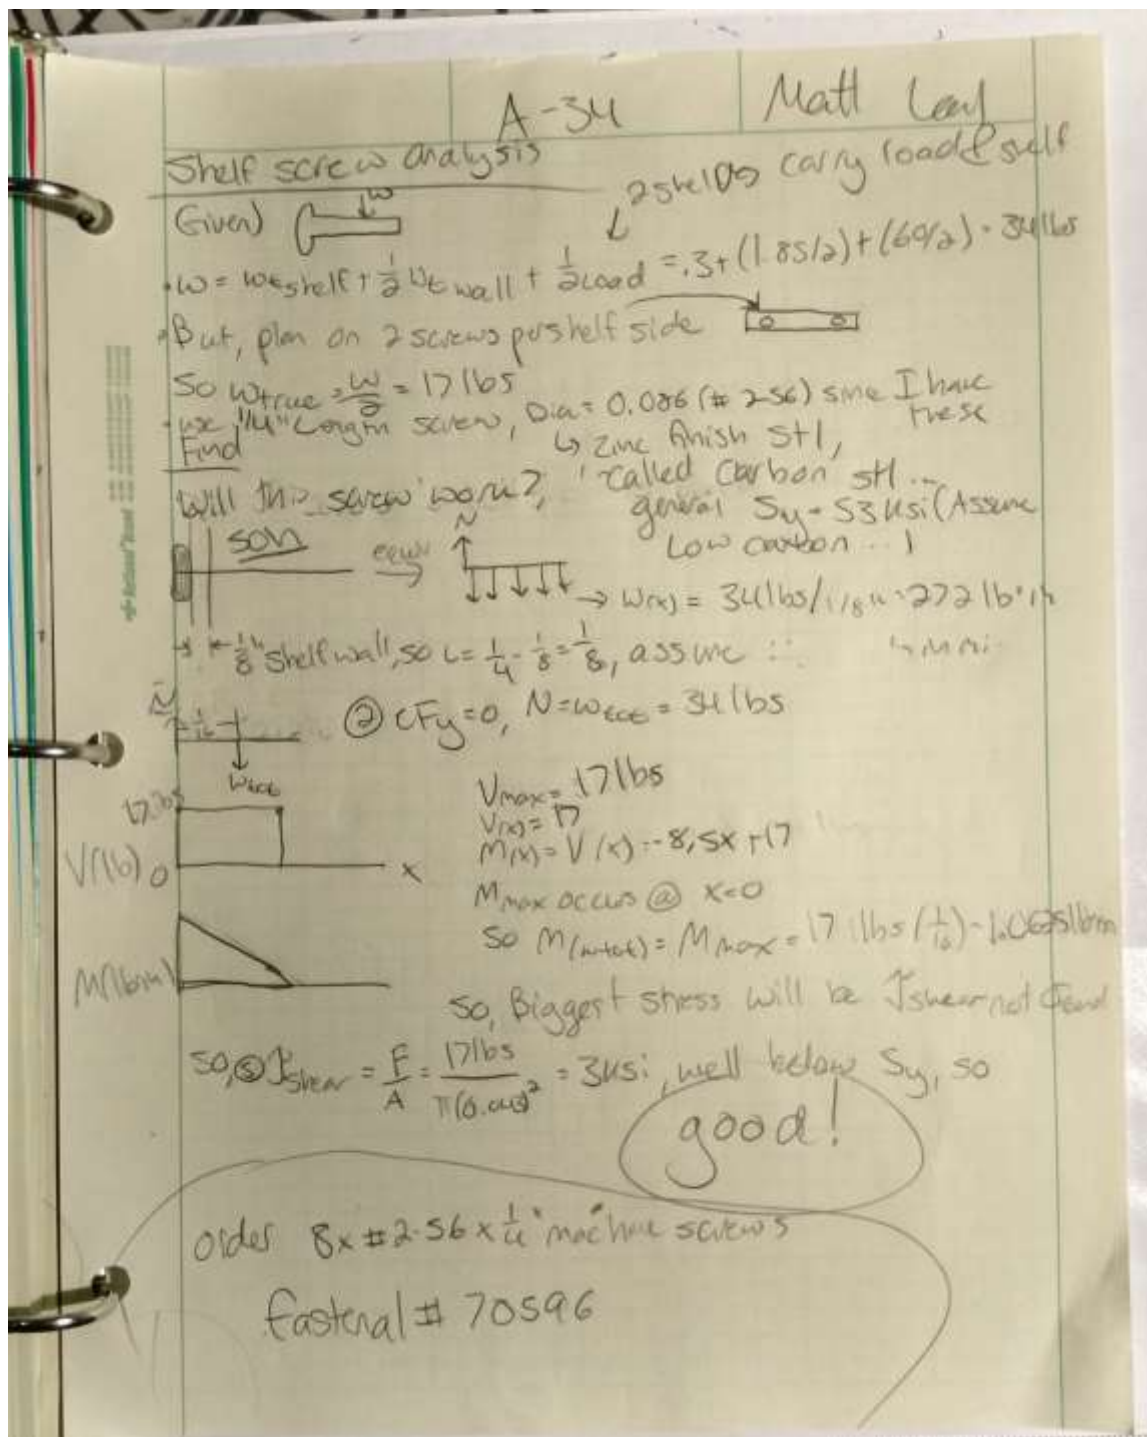 A-34
Matt
Shelf screw analysis
2 shelves carry load & self
Given)
w
• W = wt shelf + 1/2 wt wall + 1/2 load = .3 + (1.85/2) + (60/2) = 34 lbs
• But, plan on 2 screws per shelf side
So Wtrue = W/2 = 17 lbs
• use 1/4" Length screw, Dia = 0.086 (# 2-56) since I have these
Find
↳ Zinc finish stl,
Will this screw work?, 'called Carbon' stl ...
general Sy = 53 ksi (Assume
Low carbon ...)
soln
equiv
N
→ W(x) = 34 lbs/ 1/8 " = 272 lb
1/8" shelf wall, so L = 1/4 - 1/8 = 1/8, assume
N
1/16
② εFy = 0, N = Wtot = 34 lbs
Wtot
17 lbs
Vmax = 17 lbs
V(x) = 17
M(x) = V(x) = -8.5x + 17
V(lb) 0
x
Mmax occurs @ x=0
So M(wtot) = Mmax = 17 lbs (1/16) = 1.0625 lbin
M(lbin)
So, Biggest stress will be τshear not σbend
so, τshear = F/A = 17 lbs / π(0.043)² = 3 ksi, well below Sy, so
good!
order 8x #2-56 x 1/4" machine screws
fastenal # 70596